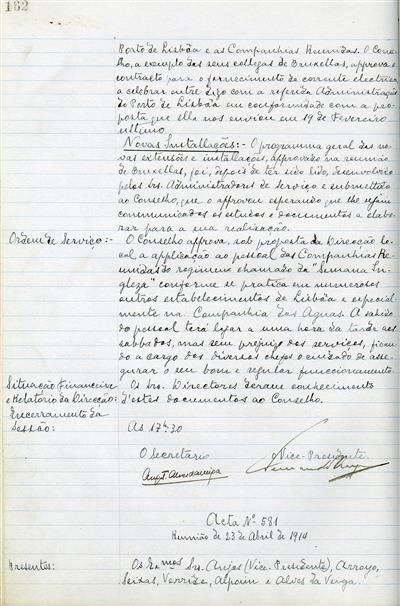 162
Porto de Lisbôa e as Companhias Reunidas. O Conse-
lho, a exemplo dos seus collegas de Bruxellas, approva o
contracto para o fornecimento de corrente electrica
a celebrar entre digo com a referida Administração
do Porto de Lisbôa em conformidade com a pro-
posta que ella nos enviou em 19 de Fevereiro
ultimo.
Novas Installações:- O programma geral das no-
vas extensões e installações, approvado na reunião
de Bruxellas, foi, depois de ter sido lido, desenvolvido
pelos Srs. Administradores de Serviço e submettido
ao Conselho, que o approvou esperando que lhe sejam
communicados os estudos e documentos a elabo-
rar para a sua realisação.
Ordem de Serviço:- O Conselho approva, sob proposta da Direcção lo-
cal, a applicação ao pessoal das Companhias Re-
unidas do regimen chamado da "Semana In-
gleza" conforme se pratica em numerosos
outros estabelecimentos de Lisbôa e especial-
mente na Companhia das Aguas. A sahida
do pessoal terá logar a uma hora da tarde aos
sabbados, mas sem prejuizo dos serviços, fican-
do a cargo dos diversos chefes o cuidado de asse-
gurar o seu bom e regular funccionamento.
Situação Financeira Os Srs. Directores deram conhecimento
e Relatorio da Direcção: d'estes documentos ao Conselho.
Encerramento da
Sessão: As 17h,30
O Secretario O Vice-Presidente
Acta Nº 581
Reunião de 23 de Abril de 1914
Presentes: Os Exmos Srs. Anjos (Vice-Presidente), Arroyo,
Seixas, Verride, Alpoim e Alves da Veiga.